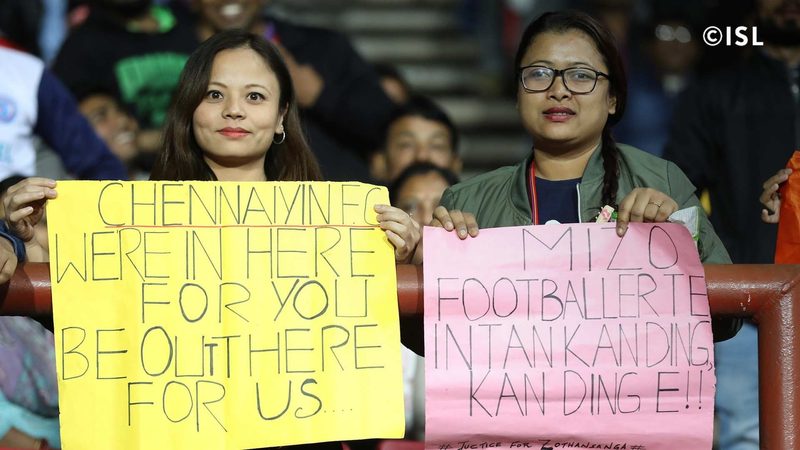 ©ISL
CHENNAIYIN F.C
WERE IN HERE
FOR YOU
BE OUTTHERE
FOR US....
MIZO
FOOTBALLERTE
INTAN KAN DING,
KAN DING E!!
# JUSTICE FOR ZOTHANSANGA